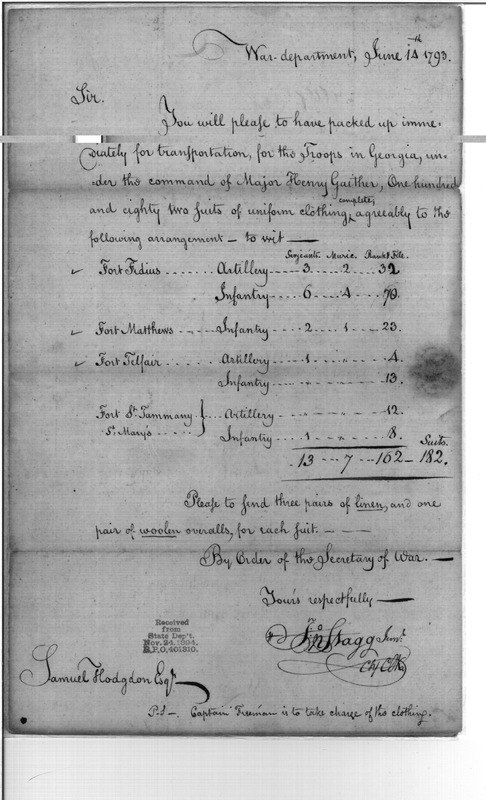 War-department, June 14th 1793.
Sir.
You will please to have packed up imme-
diately for transportation, for the Troops in Georgia, un-
-der the command of Major Henry Gaither, One hundred
and eighty two suits of uniform clothing, complete, agreeably to the
following arrangement — to wit —
Serjeants. Music. Rank & File.
Fort Fidius ...... Artillery ---- 3 ... 2 ... 32
Infantry ---- 6 ... 4 ... 70.
Fort Matthews .... Infantry ---- 2 ... 1 ... 23.
Fort Telfair ..... Artillery ---- 1 ... " ... 4.
Infantry ... " ... " ... 13.
Fort St. Tammany } Artillery ... " ... " ... 12.
St. Mary's .....
Infantry ---- 1 ... " ... 8. Suits.
13 --- 7 --- 162 — 182.
Please to send three pairs of linen, and one
pair of woolen overalls, for each suit. — — —
By Order of the Secretary of War. —
Your's respectfully —
Jno Stagg Junr.
Ch Clk
Received
from
State Dep't.
Nov. 24, 1894.
R.P.O. 401310.
Samuel Hodgdon Esqr.
P.S —. Captain Freeman is to take charge of this clothing.